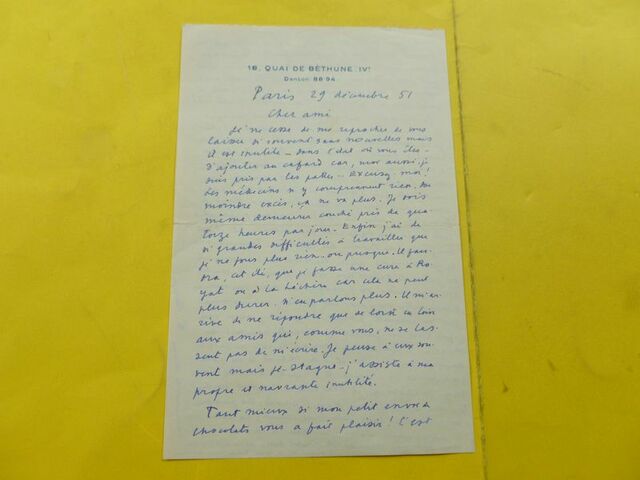 18, QUAI DE BÉTHUNE. IVe
Danton 88 94
Paris 29 décembre 51
Cher ami
Je ne cesse de me reprocher de vous
laisser si souvent sans nouvelles mais
il est inutile – dans l'état où vous êtes –
d'ajouter au cafard car, moi aussi, je
suis pris par les pattes – Excusez-moi!
Les médecins n'y comprennent rien. Au
moindre excès, ça ne va plus. Je dois
même demeurer couché près de qua
torze heures par jour. Enfin j'ai de
si grandes difficultés à travailler que
je ne fais plus rien ou presque. Il fau-
dra, cet été, que je fasse une cure à Ro
yat ou à La Léchère car cela ne peut
plus durer. N'en parlons plus. Il m'ar
rive de ne répondre que de loin en loin
aux amis qui, comme vous, ne se las-
sent pas de m'écrire. Je pense à eux sou
vent mais je stagne – j'assiste à ma
propre et navrante inutilité.
Tant mieux si mon petit envoi de
chocolats vous a fait plaisir! C'est